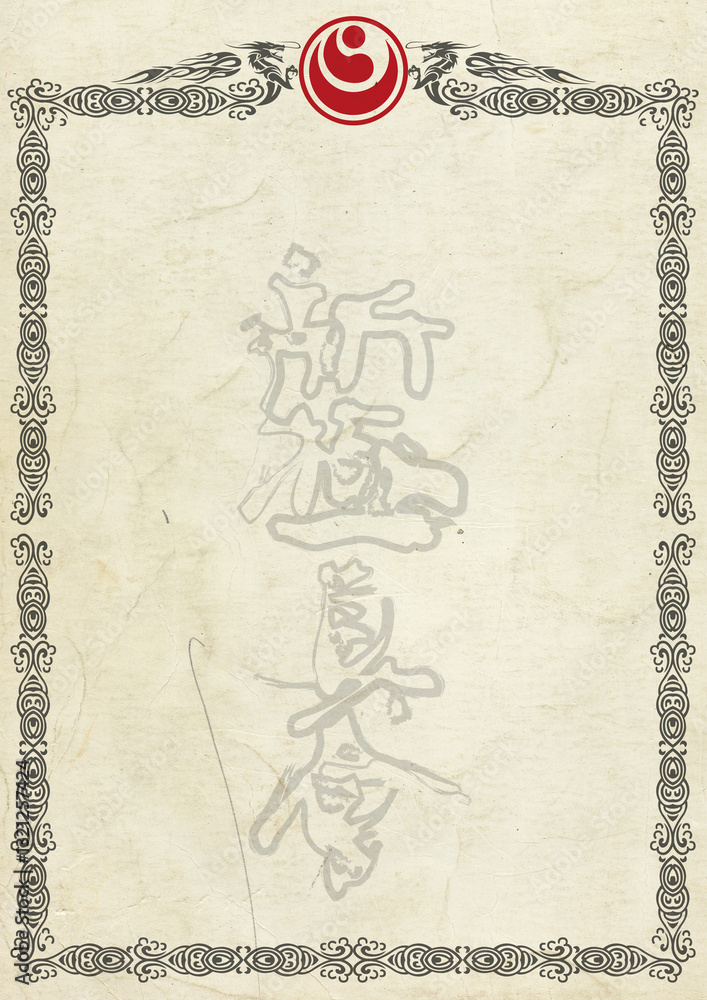 新極真会
Adobe Stock | #1321257424